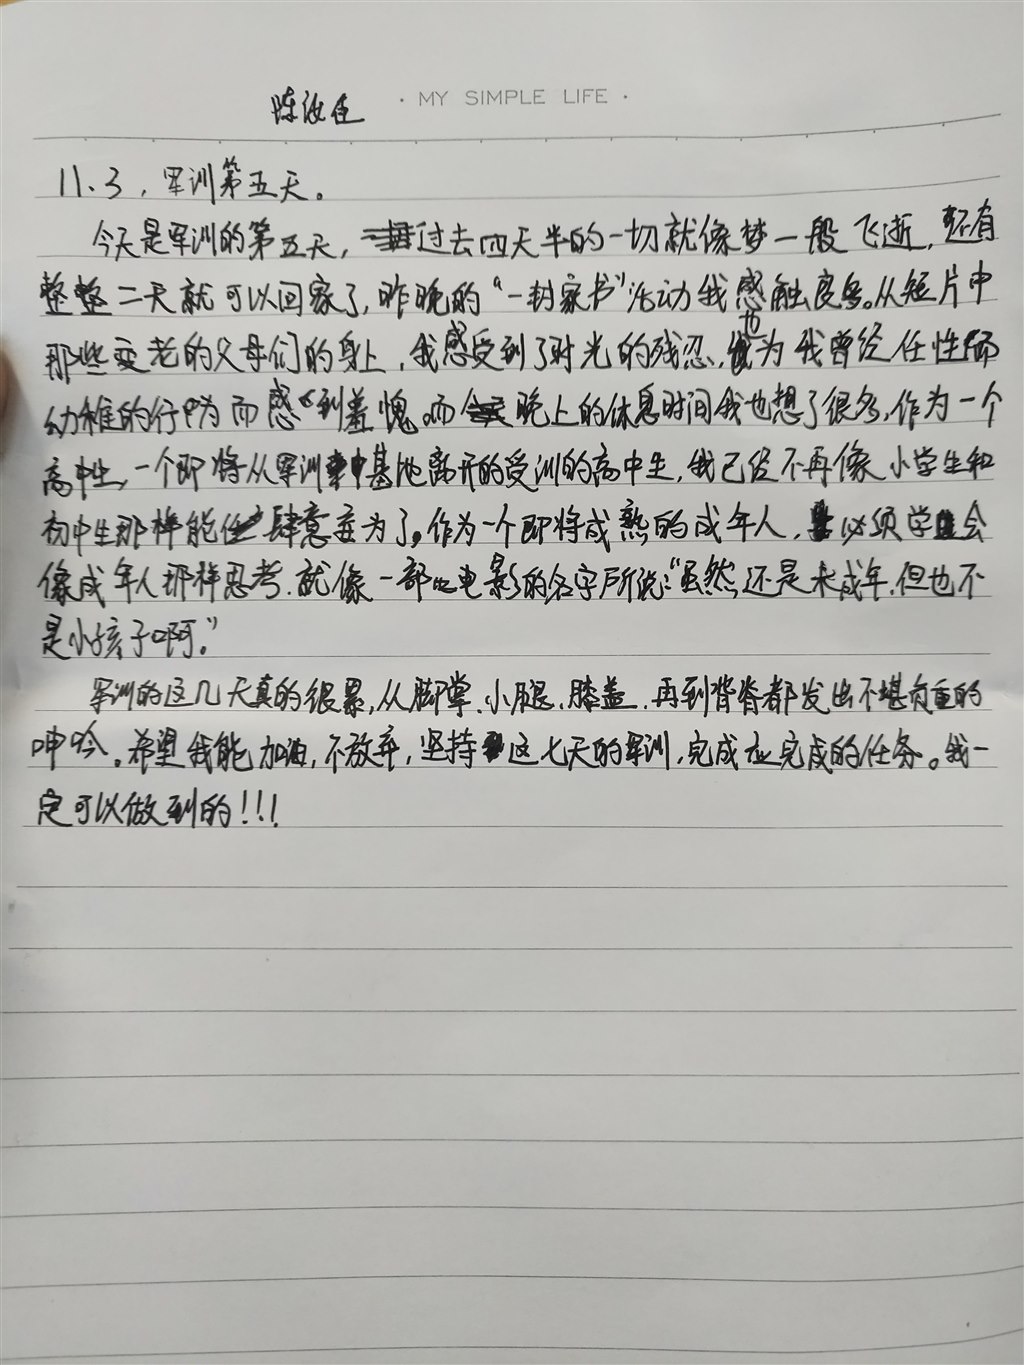 · MY SIMPLE LIFE ·
陈汝佳
11.3，军训第五天。
今天是军训的第五天，过去四天半的一切就像梦一般飞逝，还有
整整二天就可以回家了，昨晚的“一封家书”活动我感触良多。从短片中
那些变老的父母们的身上，我感受到了时光的残忍，也为我曾经任性而
幼稚的行为而感到羞愧。而晚上的休息时间我也想了很多，作为一个
高中生，一个即将从军训基地离开的受训的高中生，我已经不再像小学生和
初中生那样能肆意妄为了。作为一个即将成熟的成年人，必须学会
像成年人那样思考.就像一部电影的名字所说：“虽然还是未成年，但也不
是小孩子啊。”
军训的这几天真的很累，从脚掌、小腿、膝盖、再到背脊都发出不堪负重的
呻吟。希望我能加油，不放弃，坚持这七天的军训，完成应完成的任务。我一
定可以做到的！！！